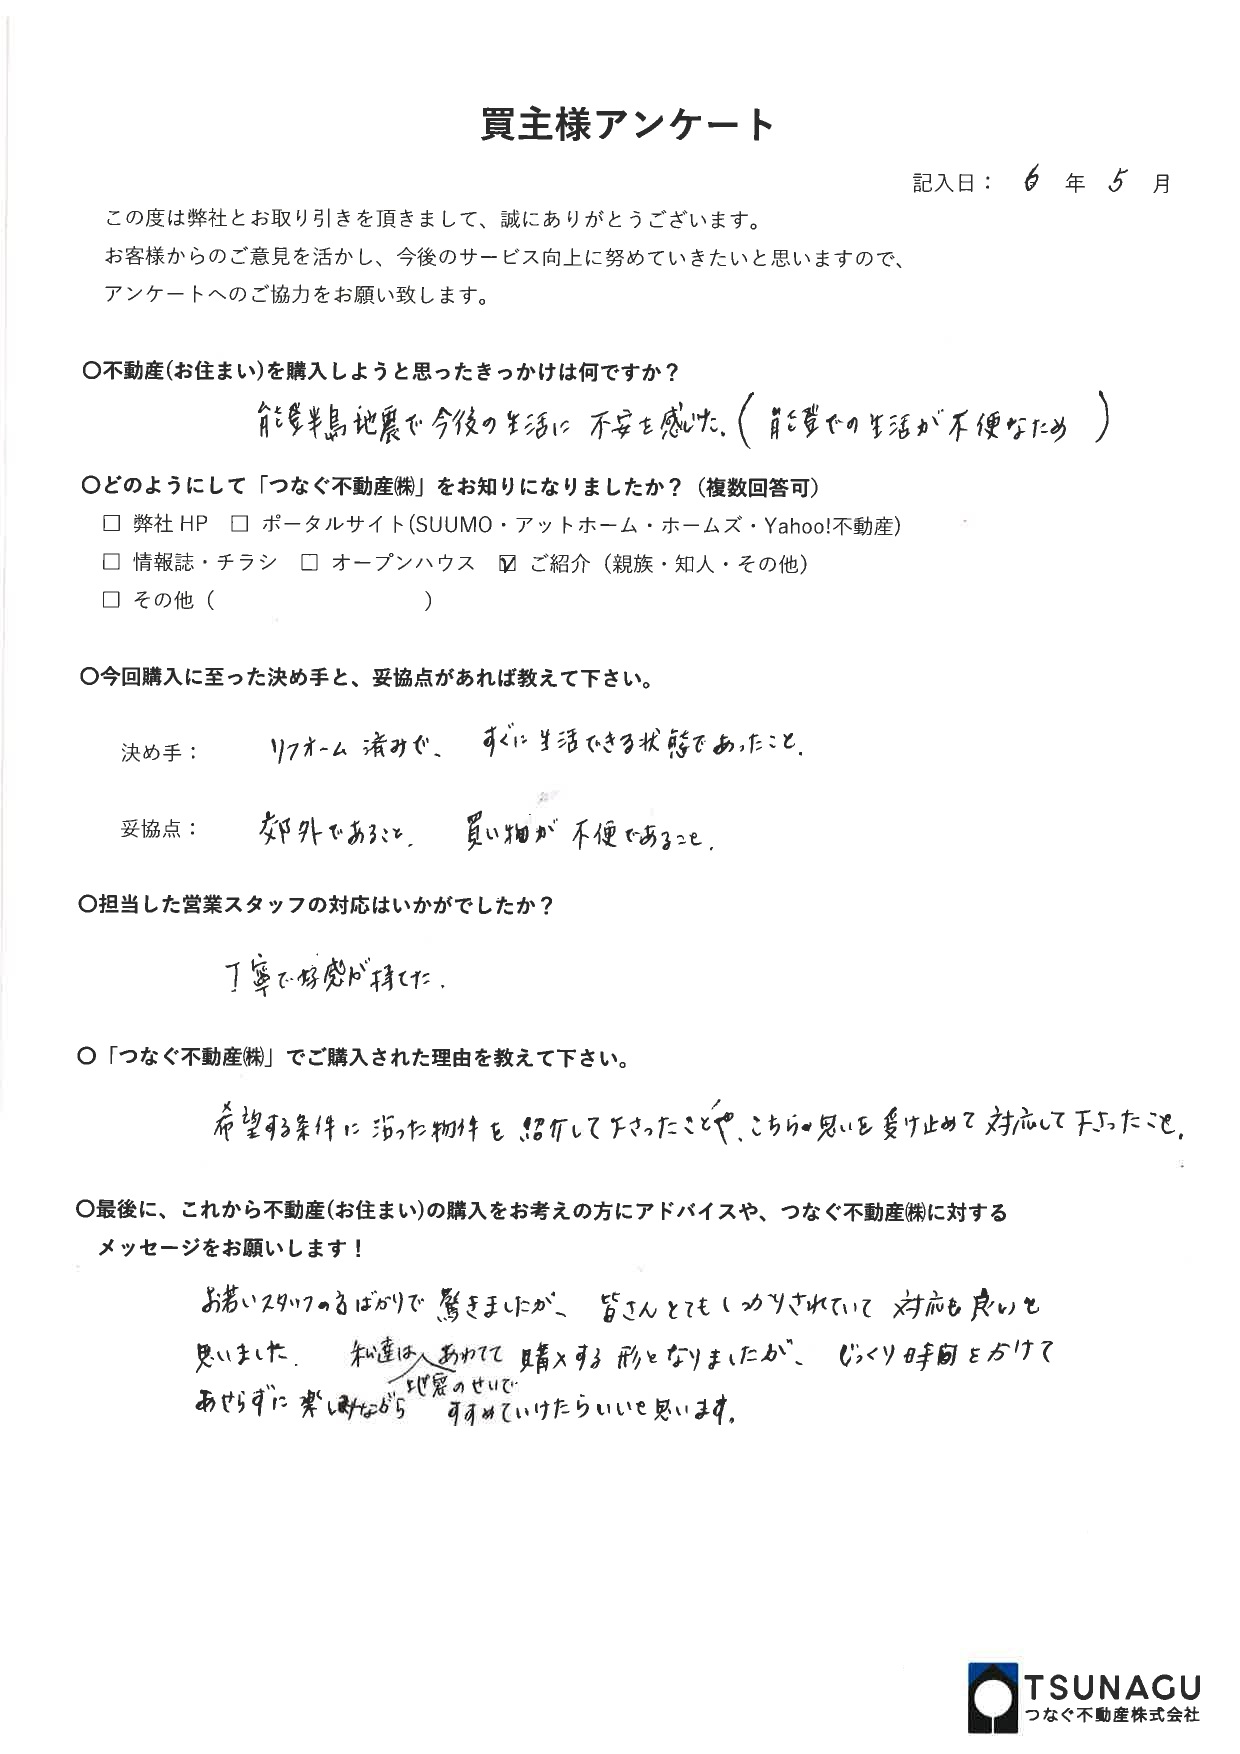 買主様アンケート
記入日： 6 年 5 月
この度は弊社とお取り引きを頂きまして、誠にありがとうございます。
お客様からのご意見を活かし、今後のサービス向上に努めていきたいと思いますので、
アンケートへのご協力をお願い致します。
〇不動産(お住まい)を購入しようと思ったきっかけは何ですか？
能登半島地震で今後の生活に不安を感じた。(能登での生活が不便なため)
〇どのようにして「つなぐ不動産㈱」をお知りになりましたか？（複数回答可）
☐ 弊社HP ☐ ポータルサイト(SUUMO・アットホーム・ホームズ・Yahoo!不動産)
☐ 情報誌・チラシ ☐ オープンハウス ☑ ご紹介（親族・知人・その他）
☐ その他（ ）
〇今回購入に至った決め手と、妥協点があれば教えて下さい。
決め手： リフォーム済みで、すぐに生活できる状態であったこと。
妥協点： 郊外であること。買い物が不便であること。
〇担当した営業スタッフの対応はいかがでしたか？
丁寧で好感が持てた。
〇「つなぐ不動産㈱」でご購入された理由を教えて下さい。
希望する条件に沿った物件を紹介して下さったことや、こちらの思いを受け止めて対応して下さったこと。
〇最後に、これから不動産(お住まい)の購入をお考えの方にアドバイスや、つなぐ不動産㈱に対する
メッセージをお願いします！
お若いスタッフの方ばかりで驚きましたが、皆さんとてもしっかりされていて対応も良いと
思いました。私達は地震のせいであわてて購入する形となりましたが、じっくり時間をかけて
あせらずに楽しみながらすすめていけたらいいと思います。
TSUNAGU
つなぐ不動産株式会社